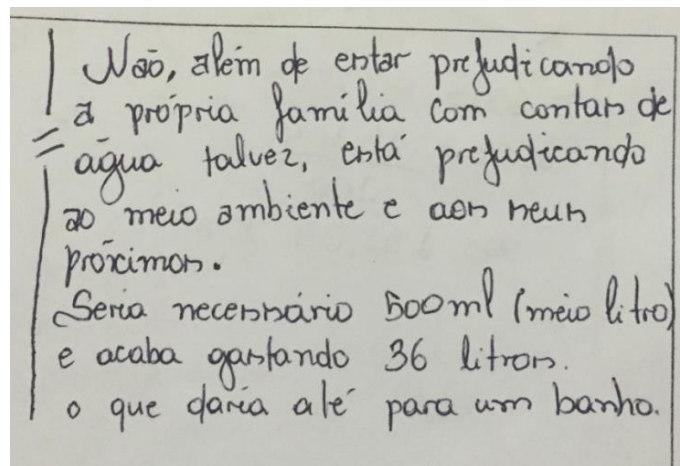 Não, além de estar prejudicando
a própria família com contas de
água talvez, está prejudicando
ao meio ambiente e aos seus
próximos.
Seria necessário 500ml (meio litro)
e acaba gastando 36 litros.
o que daria até para um banho.